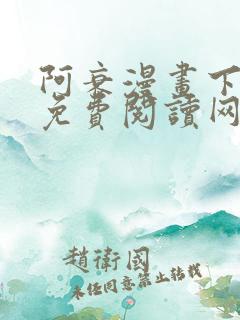 阿衰漫畫下
免費閱讀网
趙衛國
未经同意禁止转载